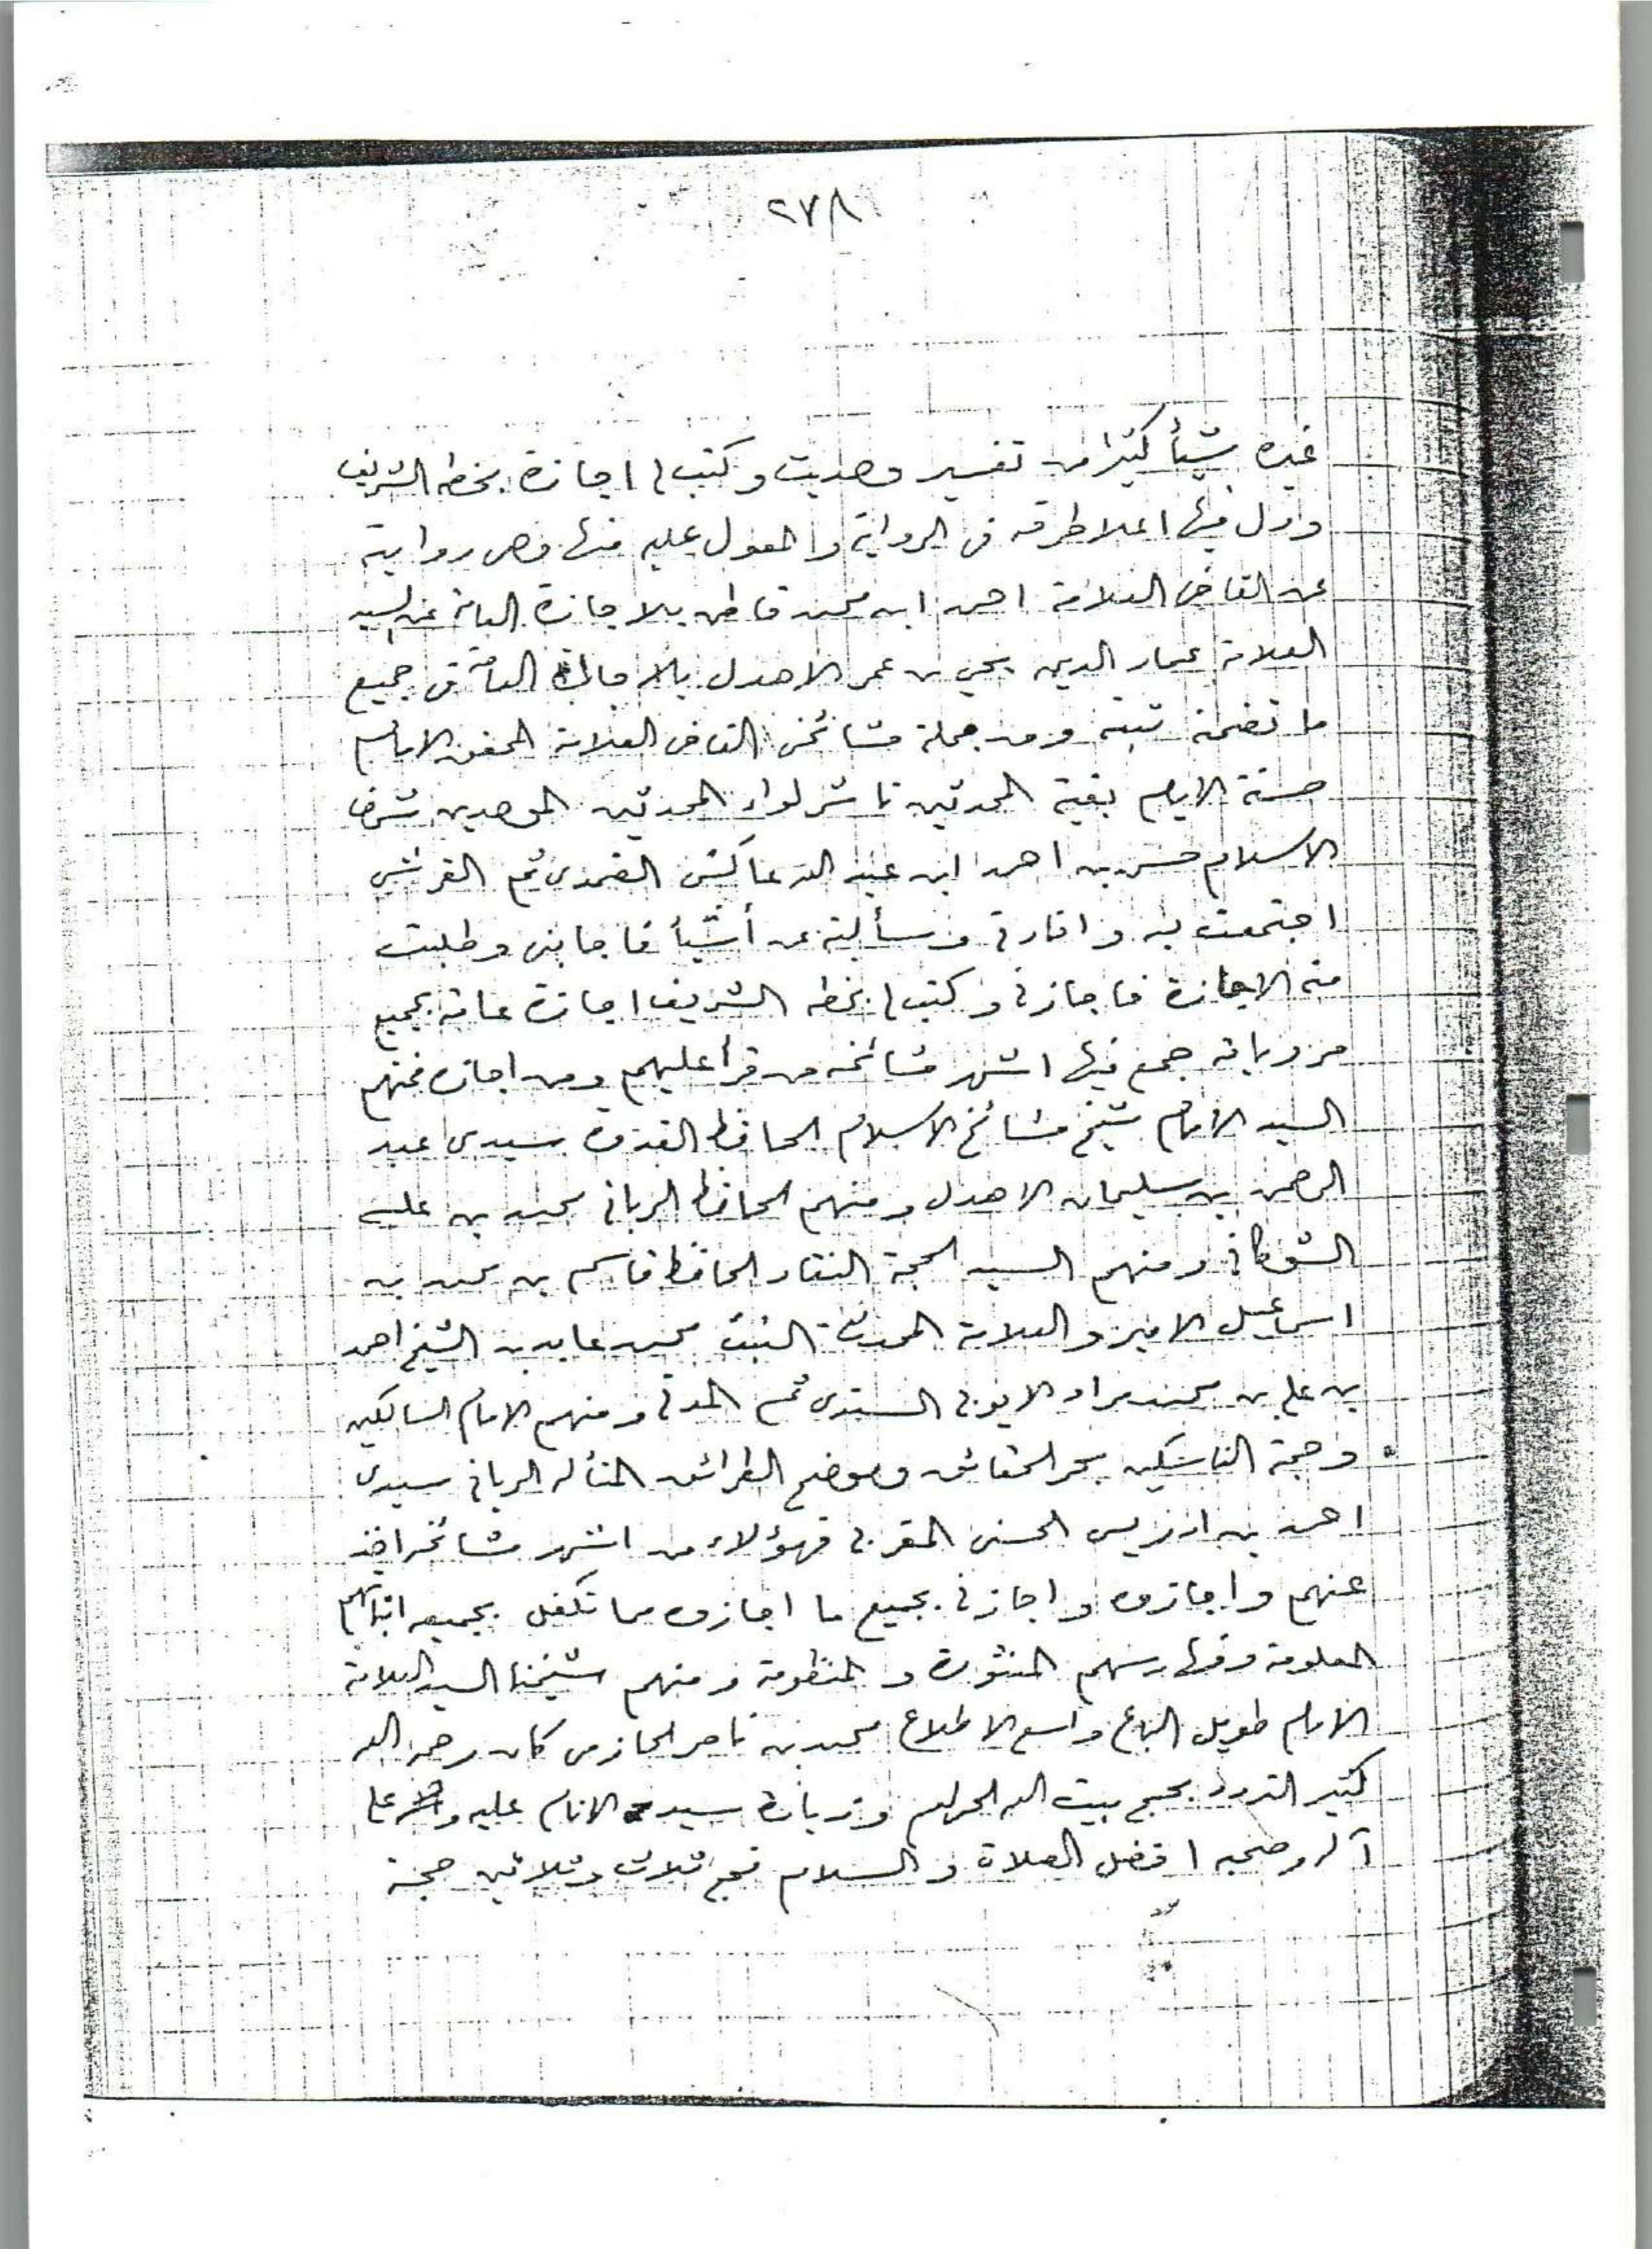 ٢٧٨
غيره شيأ كثيرا من تفسير وحديث وكتب لى اجازة بخطه الشريف
وذكر فيها اعلا طرقه فى الرواية والمعول عليه منها وهى روايته
عن القاضى العلامة احمد ابن محمد قاطن بالاجازة العامة عن السيد
العلامة عماد الدين يحيى بن عمر الاهدل بالاجازة العامة فى جميع
ما تضمنه ثبته ومن جملة مشائخى القاضى العلامة المحقق الامام
حسنة الايام بقية المحدثين ناشر لواء المحدثين الموحدين شرف
الاسلام حسن بن احمد ابن عبد الله عاكش الضمدى ثم القرشى
اجتمعت به وافادنى وسألته عن أشيأ فاجابنى وطلبت
منه الاجازة فاجازنى وكتب لى بخطه الشريف اجازة عامة بجميع
مروياته جمع فيها اشهر مشائخه من قرأ عليهم ومن اجازه فمنهم
السيد الامام شيخ مشائخ الاسلام الحافظ القدوة سيدى عبد
الرحمن بن سليمان الاهدل ومنهم الحافظ الربانى محمد بن على
الشوكانى ومنهم السيد الحجة النقاد الحافظ قاسم بن محمد بن
اسماعيل الامير والعلامة المحدث الثبت محمد عابد بن الشيخ احمد
بن على بن محمد مراد الايوبى السندى ثم المدنى ومنهم الامام السالكين
وحجة الناسكين بحر الحقائق وموضح الطرائق المتأله الربانى سيدى
احمد بن ادريس الحسنى المغربى فهؤلاء من اشهر مشائخه اخذ
عنهم واجازوه واجازنى بجميع ما اجازوه مما تكفل بجميعه اثباتهم
المعلومة وفهارسهم المنثورة والمنظومة ومنهم شيخنا السيد العلامة
الامام طويل الباع واسع الاطلاع محمد بن ناصر الحازمى كان رحمه الله
كثير التردد بحج بيت الله الحرام وزيارة سيد الانام عليه وعلى
آله وصحبه افضل الصلاة والسلام فحج ثلاث وثلاثين حجة